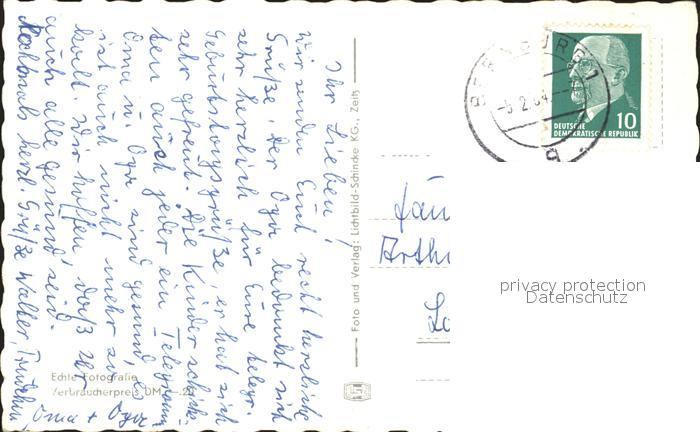 Ihr Lieben!
Wir senden Euch recht herzliche
Grüße, der Opa bedankt sich
sehr herzlich für Eure telegr.
Geburtstagsgrüße, er hat sich
sehr gefreut. Die Kinder schick-
ten auch jeder ein Telegramm
Oma u. Opa sind gesund, es
ist auch nicht mehr so
kalt. Wir hoffen, daß Ihr
auch alle gesund seid.
Nochmals herzl. Grüße Walter, Trudchen,
Oma + Opa.
Echte Fotografie
Verbraucherpreis DM
Foto und Verlag: Lichtbild-Schincke KG., Zeitz
BERNBURG 1
-5.2.64
DEUTSCHE
DEMOKRATISCHE REPUBLIK
10
Arth
privacy protection
Datenschutz